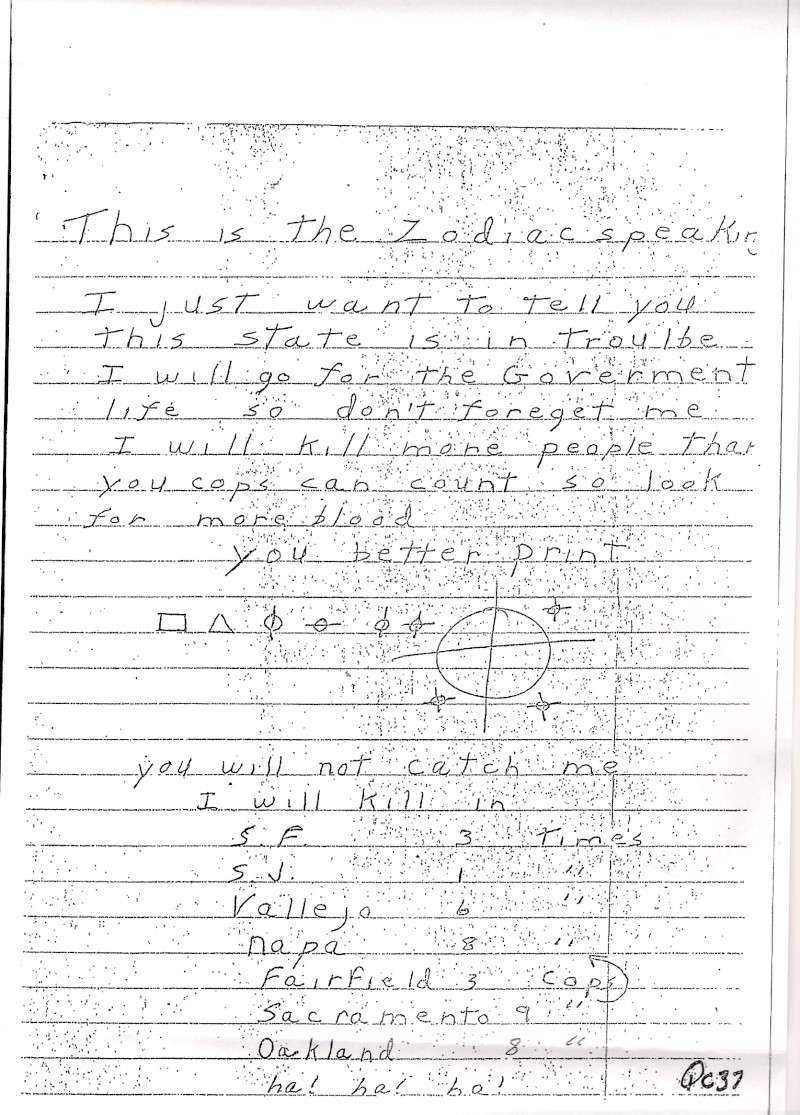 This is the Zodiac speakin
I just want to tell you
this state is in troulbe
I will go for the Goverment
life so don't foreget me
I will kill more people than
you cops can count so look
for more blood
you better print
you will not catch me
I will kill in
S.F. 3 times
S.J. 1 "
Vallejo 6 "
napa 8 "
Fairfield 3 cops
Sacramento 9 "
Oakland 8 "
ha! ha! ha!
Qc37